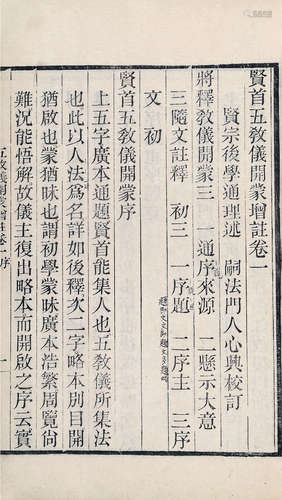 賢首五教儀開蒙增註卷一
賢宗後學通理述 嗣法門人心興校訂
將釋教儀開蒙三 一通序來源 二懸示大意
三隨文註釋 初三 一序題 二序主 三序
文 初
賢首五教儀開蒙序
上五字廣本通題賢首能集人也五教儀所集法
也此以人法為名詳如後釋次二字略本別目開
猶啟也蒙猶昧也謂初學蒙昧廣本浩繁周覽尚
難況能悟解故儀主復出略本而開啟之序云實
五教儀開蒙增註卷一序 一